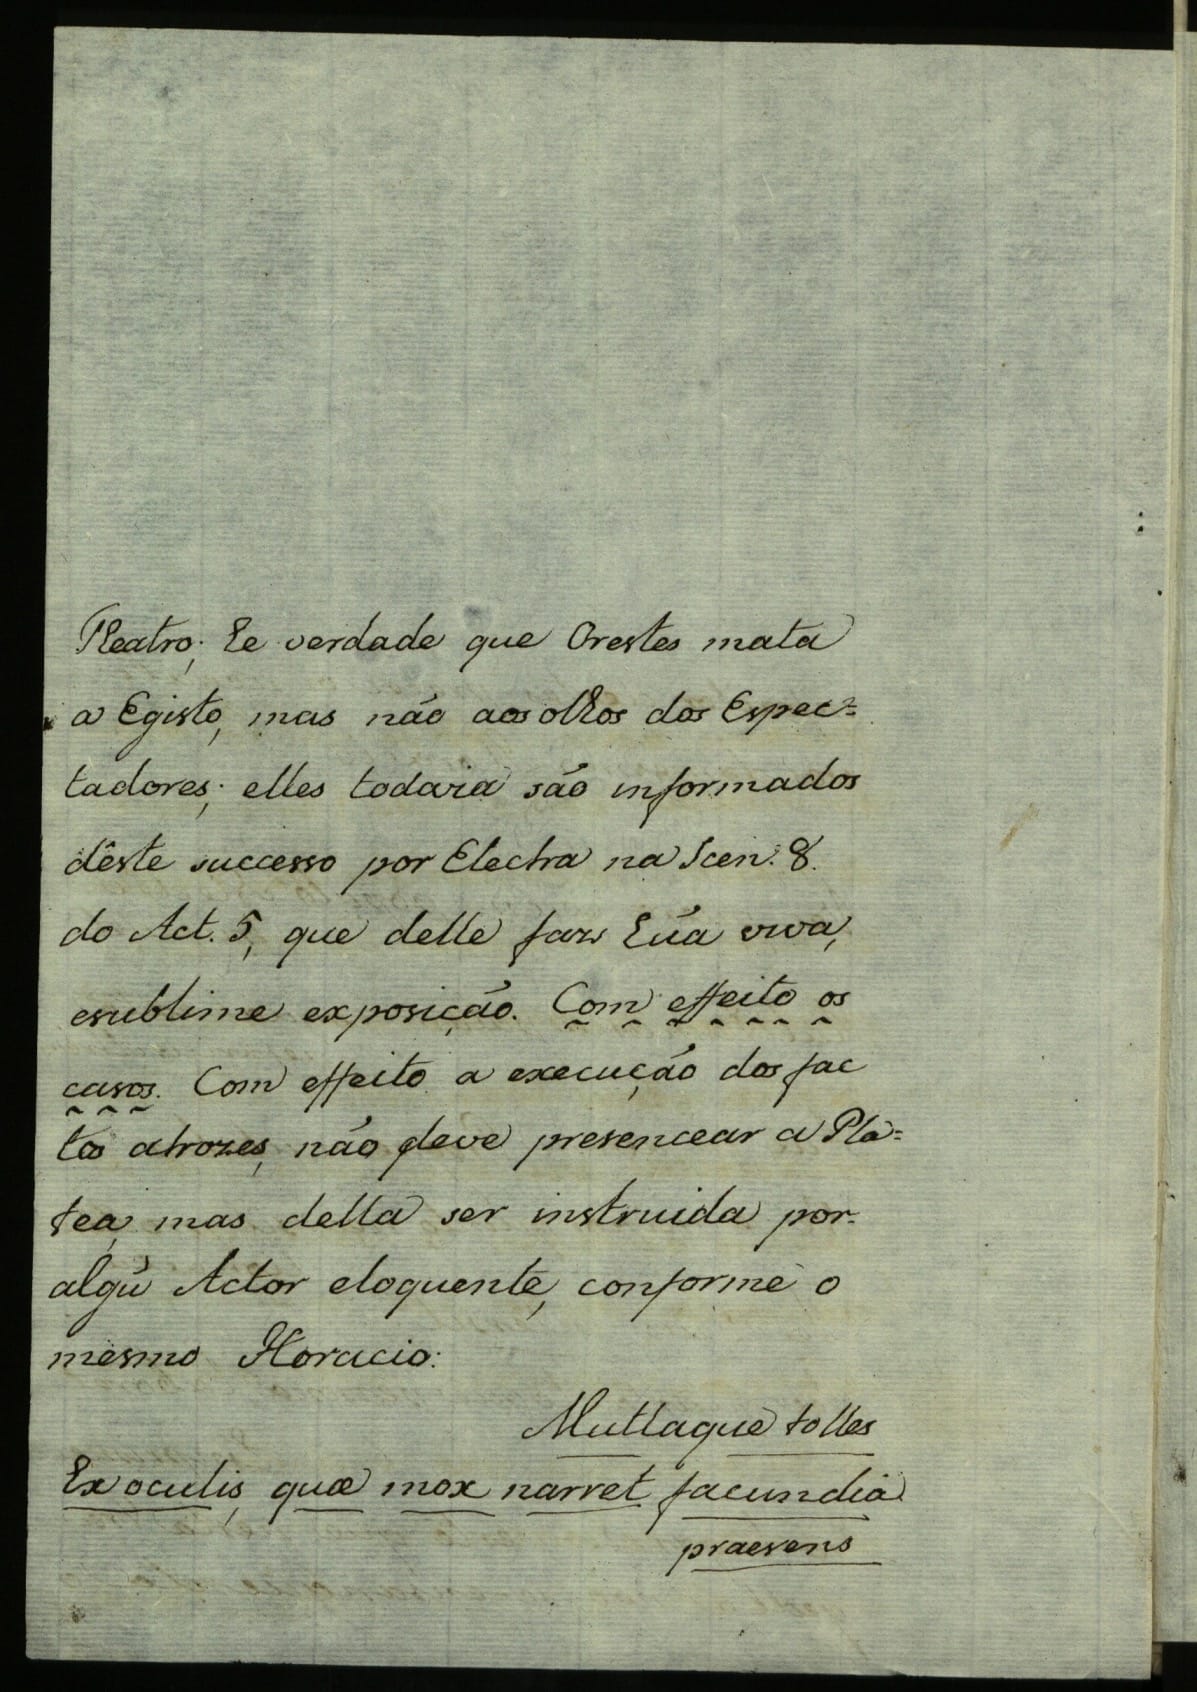 Theatro; he verdade que Orestes mata
a Egisto, mas não aos olhos dos Espec=
tadores; elles todavia são informados
dêste successo por Electra na Scen. 8.
do Act. 5, que delle faz húa viva,
esublime exposição. Com effeito os
casos. Com effeito a execução dos fac
tos atrozes, não deve presencear a Pla=
tea, mas della ser instruida por
algú Actor eloquente, conforme o
mesmo Horacio:
Multaque tolles
Ex oculis, quæ mox narret facundia
praesens